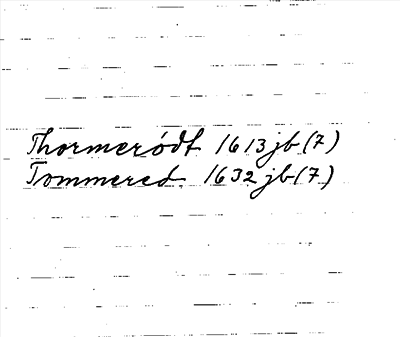 Thormeródt 1613 jb (7)
Tommered 1632 jb (7)